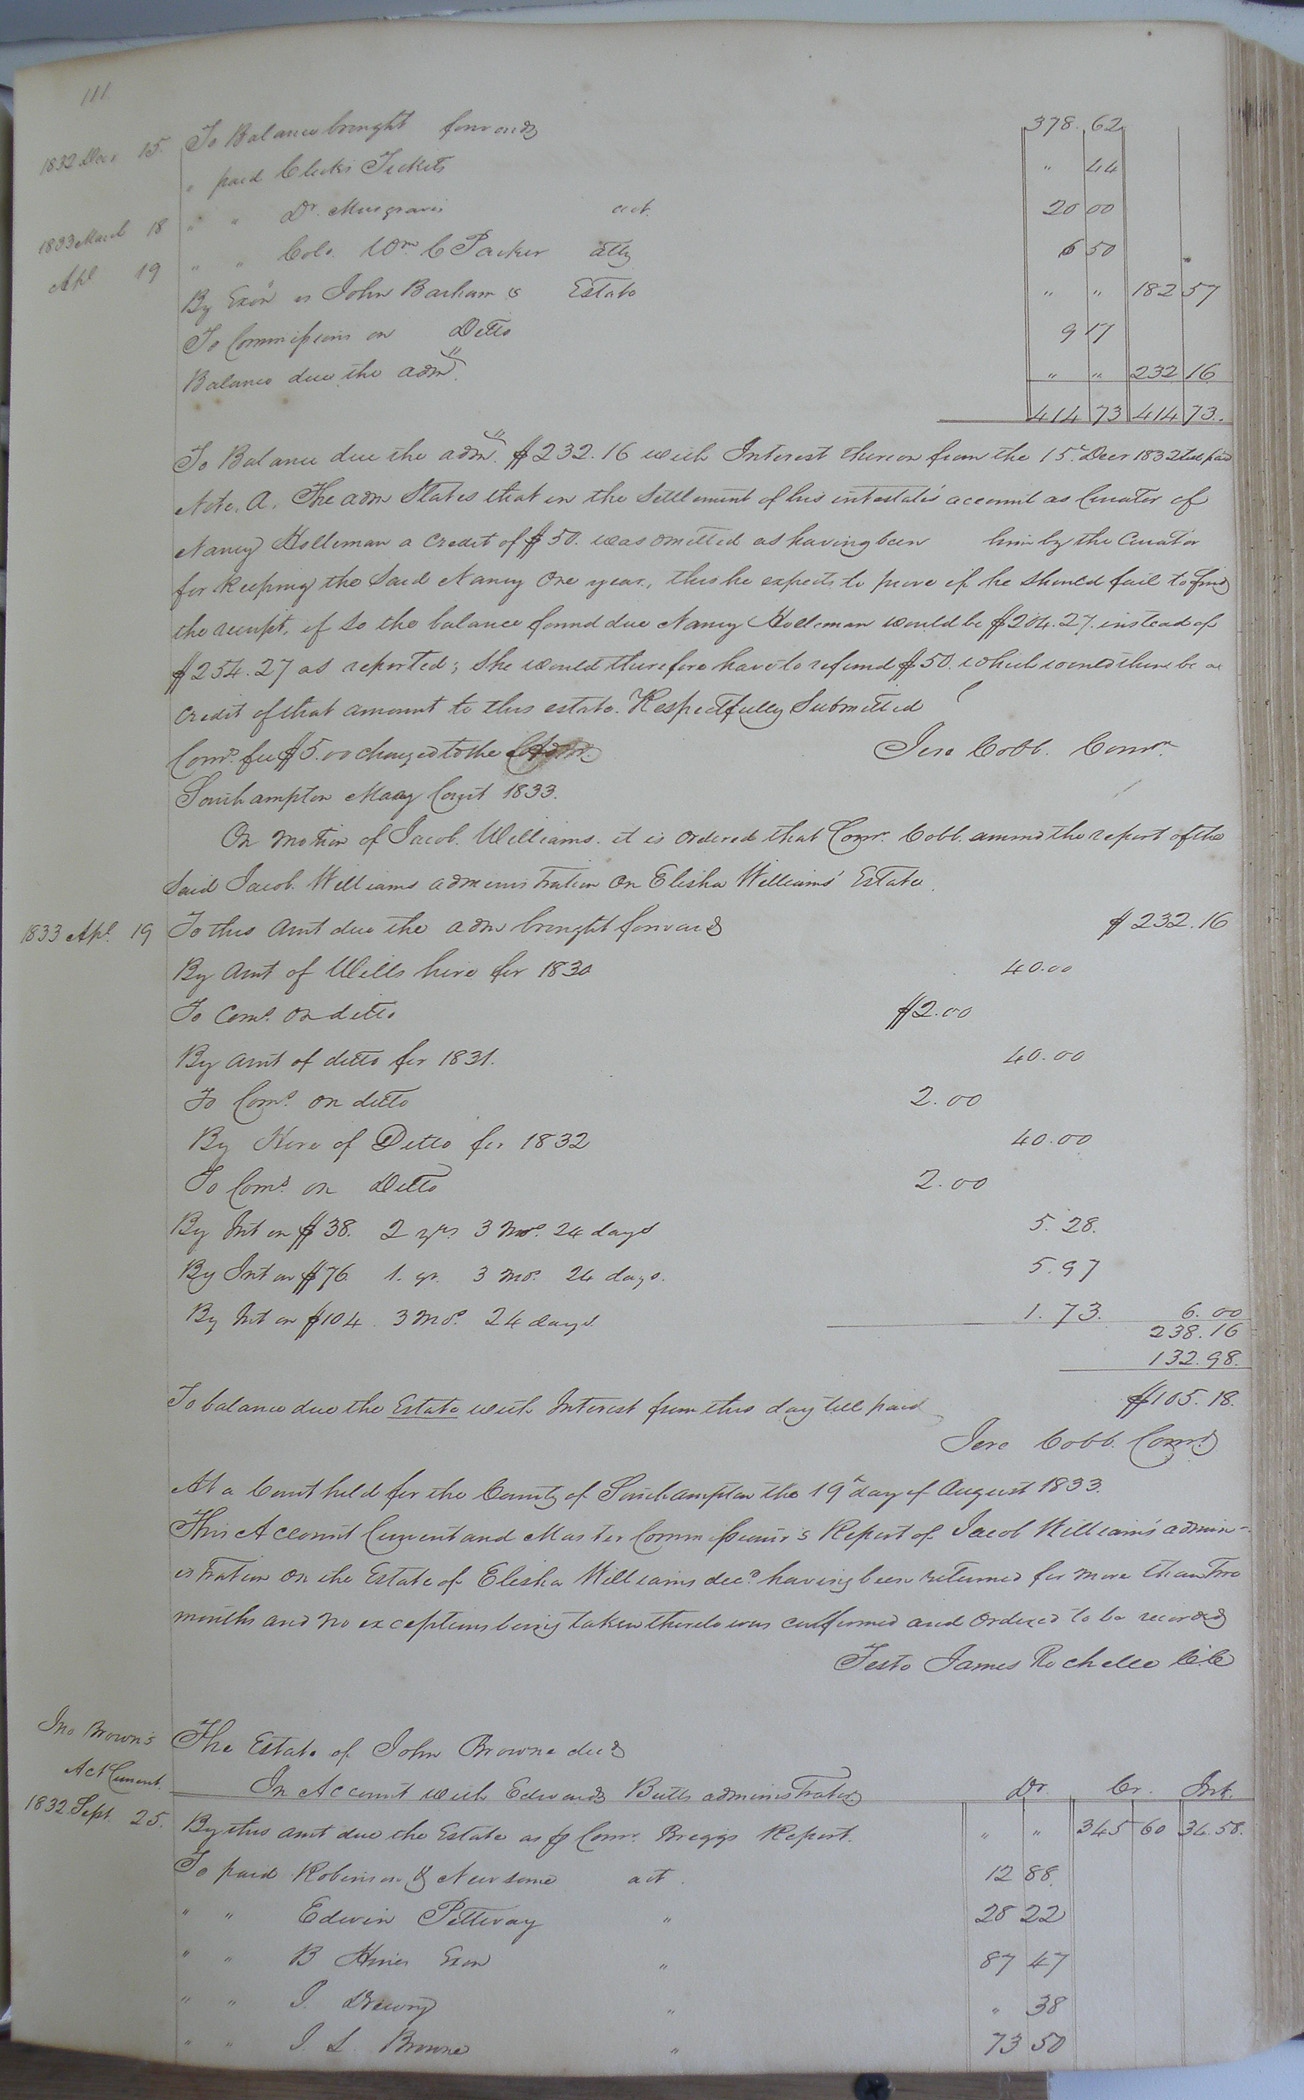 111
To Balance brought forward 378. 62
1832 Decr 15. " paid Clerks Tickets " 44
" " Dr. Musgraves act. 20 00
1833 March 18 " " Colo. Wm. C Parker atty 6 50
Apl 19 By Exor of John Barham's Estate " " 182 57
To Commissions on Ditto 9 17
Balance due the adm. " " 232 16
414 73 414 73.
To Balance due the adm. $232.16 with Interest thereon from the 15th Decr 1832 till paid
Note. A. The adm States that in the Settlement of his intestate's account as Curator of
Nancy Holleman a credit of $50. was omitted as having been him by the Curator
for keeping the Said Nancy One year, this he expects to prove if he should fail to find
the receipt, if so the balance found due Nancy Holleman would be $204.27. instead of
$254.27 as reported; She would therefore have to refund $50. which would then be a
Credit of that amount to this estate. Respectfully Submitted
Comr. fee $5.00 charged to the Admr. Jere Cobb. Comr.
Southampton May Court 1833.
On motion of Jacob. Williams. it is ordered that Comr. Cobb. amend the report of the
Said Jacob. Williams administration On Elisha Williams' Estate.
1833 Apl. 19 To this Amt due the adm brought forward $232.16
By Amt of Wills hire for 1830 40.00
To Coms. On ditto $2.00
By amt of ditto for 1831. 40.00
To Coms. on ditto 2.00
By Hire of Ditto for 1832 40.00
To Coms. on Ditto 2.00
By Int on $38. 2 yrs 3 mos. 24 days 5.28.
By Int on $76 1. yr. 3 mos. 24 days. 5.97
By Int on $104 3 mos. 24 days. 1.73. 6.00
238.16
132.98.
To balance due the Estate with Interest from this day till paid $105.18.
Jere Cobb. Comr.
At a Court held for the County of Southampton the 19th day of August 1833.
This Account Current and Master Commissioner's Report of Jacob Williams' admin-
istration on the Estate of Elisha Williams decd. having been returned for more than Two
months and no exceptions being taken thereto was confirmed and ordered to be recorded
Teste James Rochelle C.C
Jno Browne's The Estate of John Browne decd
Act Current. In Account with Edwards Butts administrator Dr. Cr. Int.
1832 Sept. 25. By this amt due the Estate as p Comr. Briggs Report. " " 345 60 34.58.
To paid Robinson & Newsome act. 12 88.
" " Edwin Pettway " 28 22
" " B Hines Exor " 87 47
" " J. Drewry " " 38
" " J. S Browne " 73 50